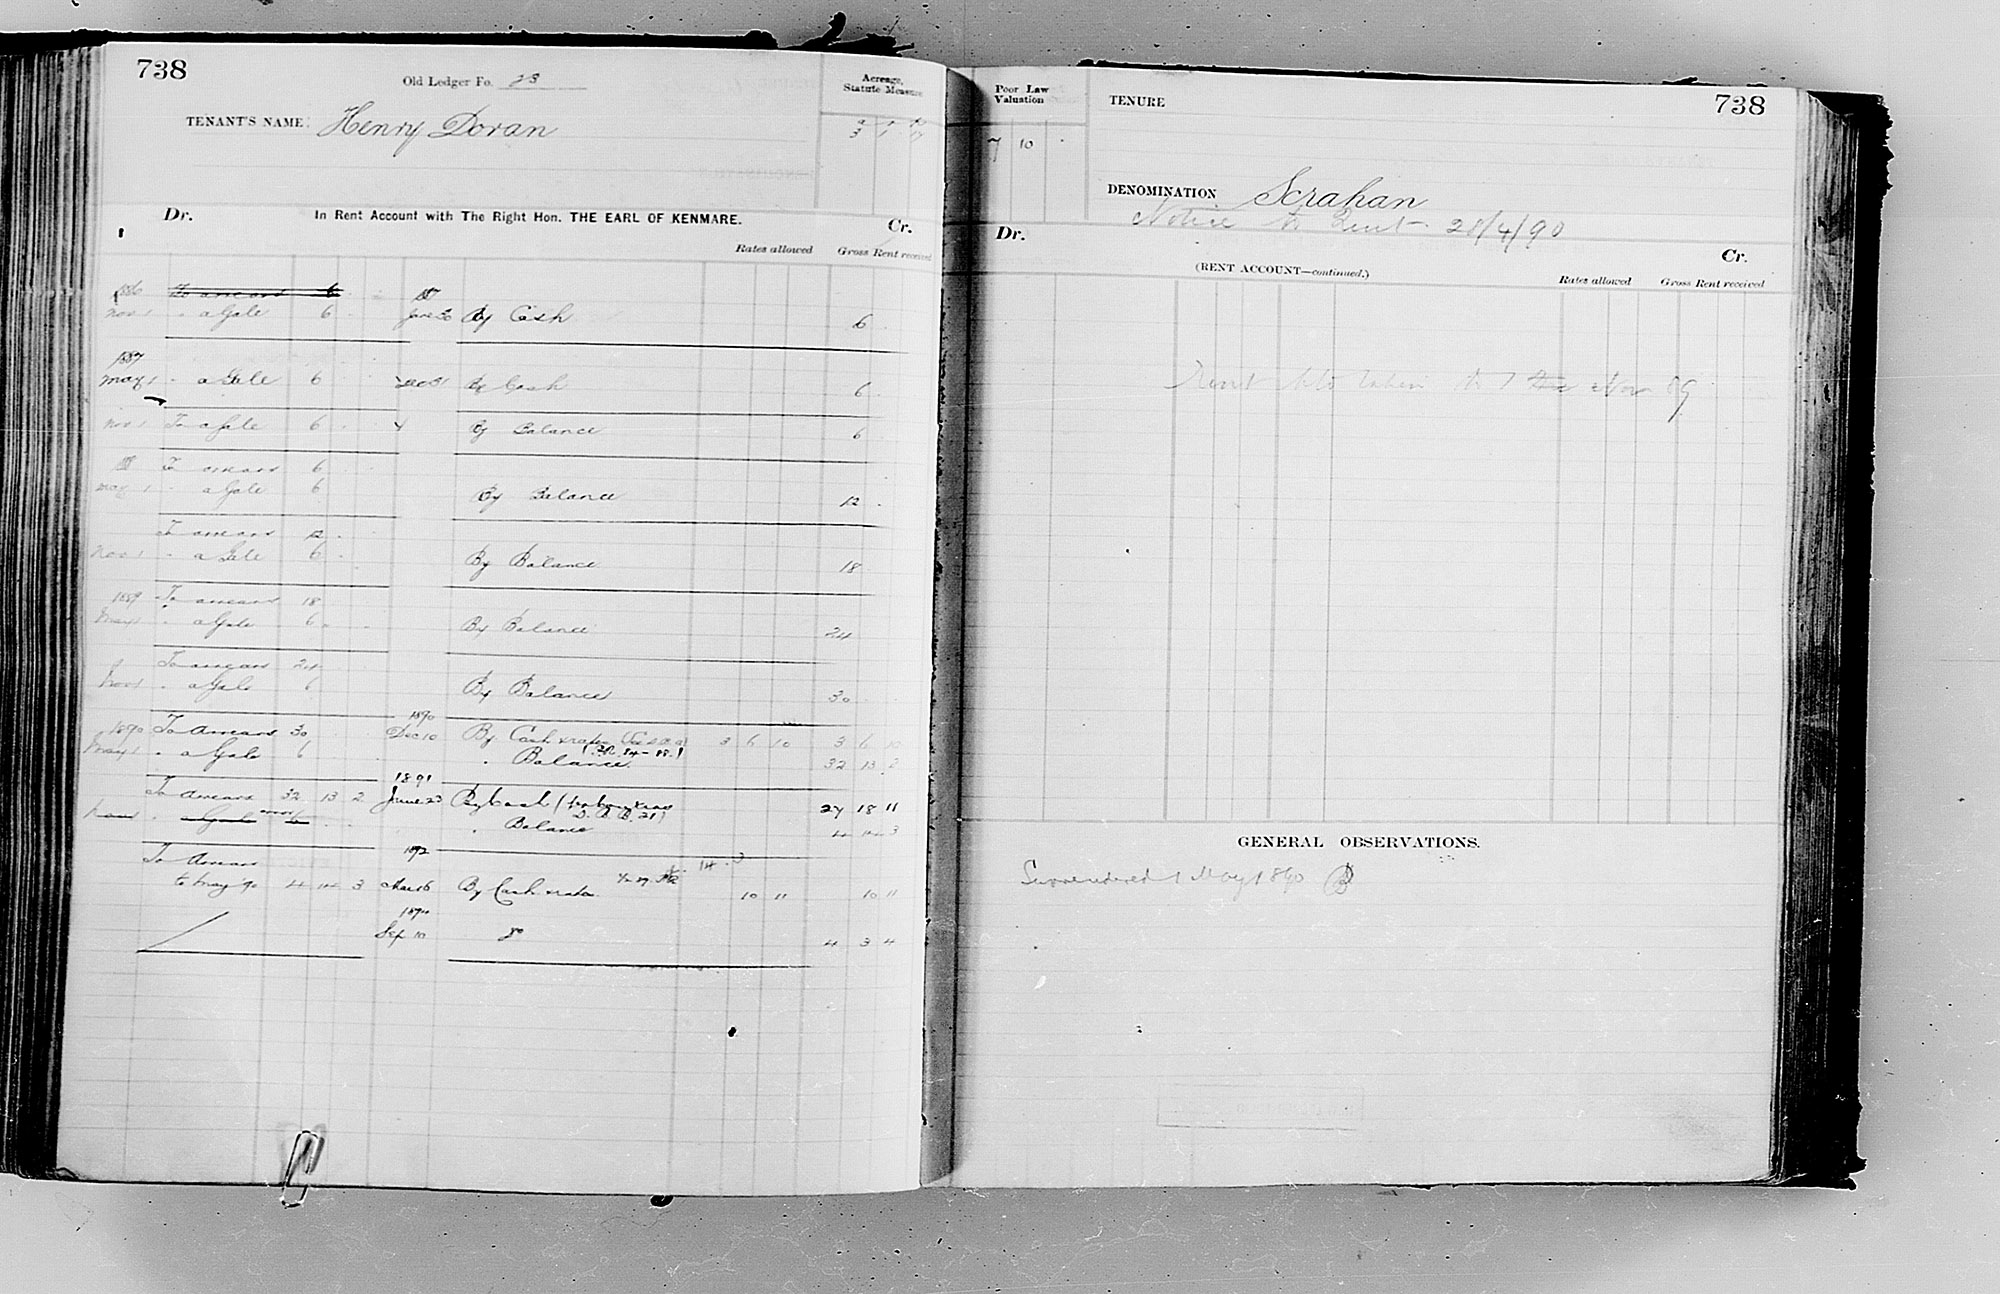 738
Old Ledger Fo. 23
Acreage, Statute Measure
TENANT'S NAME: Henry Doran
a r p
3 1
Dr. In Rent Account with The Right Hon. THE EARL OF KENMARE. Cr.
Rates allowed Gross Rent received
1886 To arrears 6
Nov 1 " a Gale 6 June 30 By Cash 6
1887
May 1 " a Gale 6 Dec 31 By Cash 6
Nov 1 To a Gale 6 By Balance 6
To arrears 6
May 1 " a Gale 6 By Balance 12
To arrears 12
Nov 1 " a Gale 6 By Balance 18
1889 To arrears 18
May 1 " a Gale 6 By Balance 24
To arrears 24
Nov 1 " a Gale 6 By Balance 30
1890
1890 To Arrears 30 Dec 10 By Cash & rates 3 6 10 3 6 10
May 1 " a Gale 6 " Balance 32 13 2
1891
To Arrears 32 13 2 June 23 By Cash 27 18 11
Nov 1 " a Gale 6 " Balance 4 14 3
1892
To Arrears
to May 90 4 14 3 Mar 16 By Cash & rates 10 11 10 11
Sep 10 do 4 3 4
Poor Law Valuation
7 10
TENURE
738
DENOMINATION Scrahan
Notice to Quit 28/4/90
Dr. Cr.
(RENT ACCOUNT—continued.)
Rates allowed Gross Rent received
Rent to Nov 89
GENERAL OBSERVATIONS.
Surrendered 1 May 1890